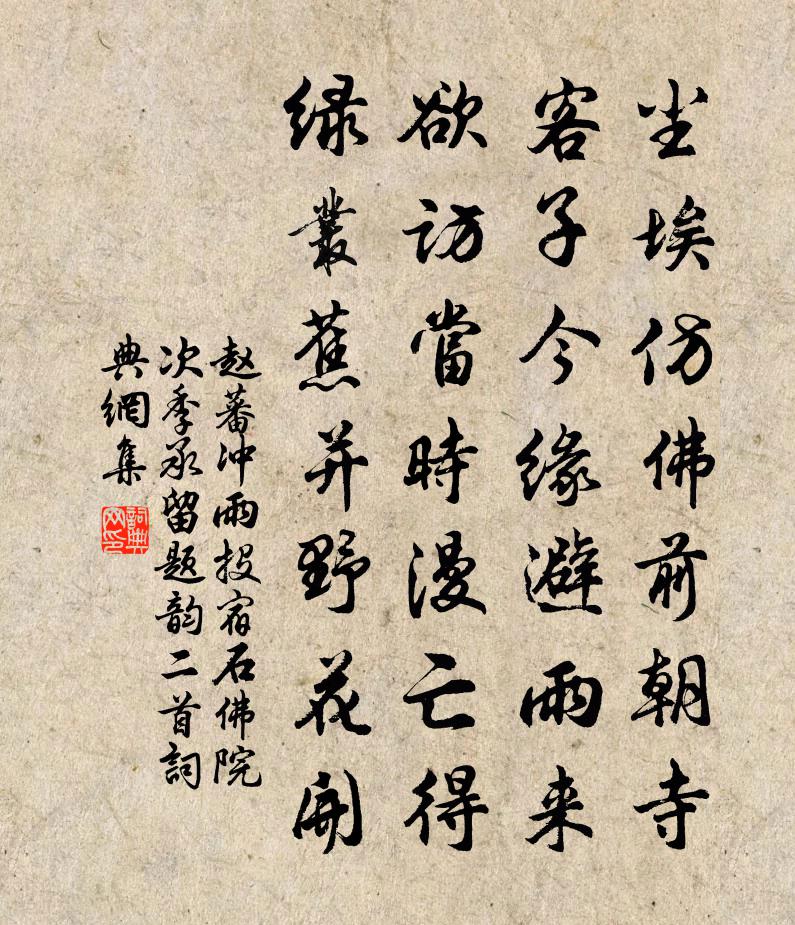 尘埃仿佛前朝寺
客子今缘避雨来
欲访當時漫亡得
绿叢蕉并野花开
赵蕃冲雨投宿石佛院
次季承留题韵二首詞
典網集
詞典
网印